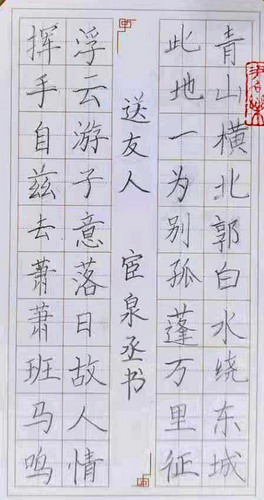 青山横北郭白水绕东城
此地一为别孤蓬万里征
送友人 泉丞书
浮云游子意落日故人情
挥手自兹去萧萧班马鸣